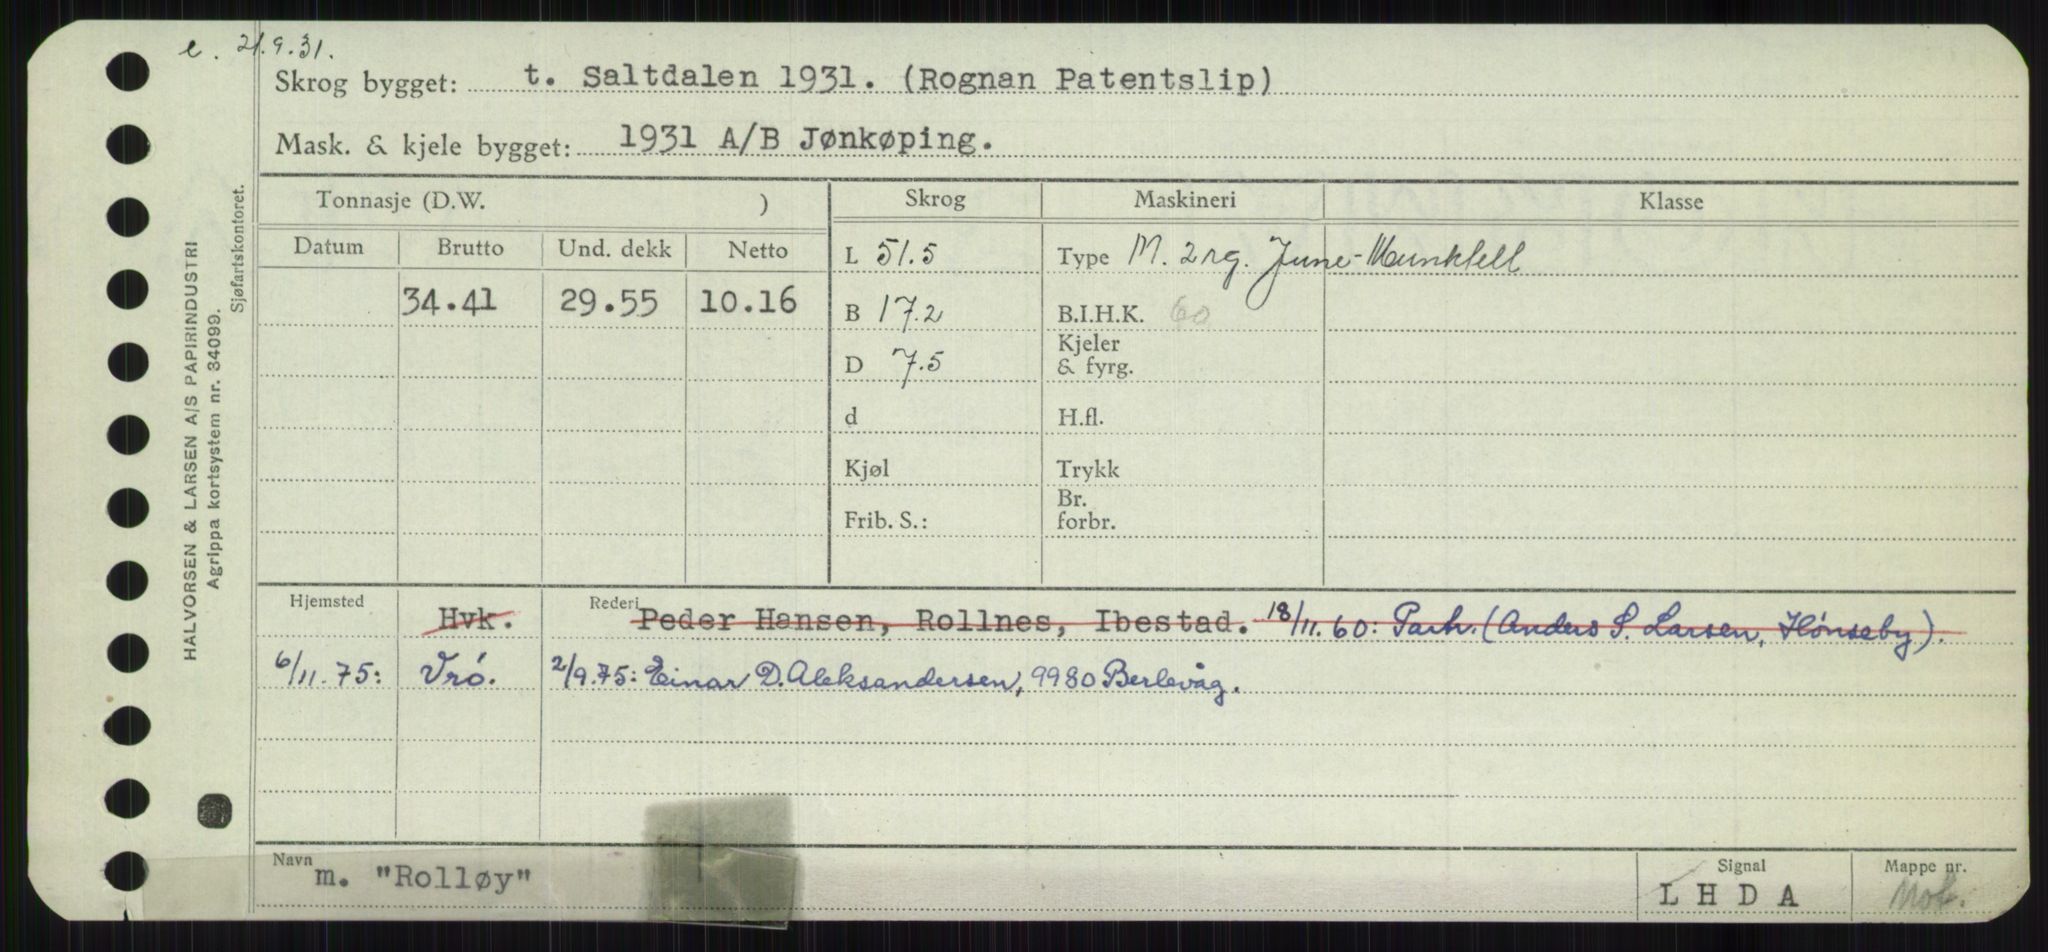 e. 21.9.31.
Skrog bygget: t. Saltdalen 1931. (Rognan Patentslip)
Mask. & kjele bygget: 1931 A/B Jønkøping.
HALVORSEN & LARSEN A/S PAPIRINDUSTRI
Agrippa kortsystem nr. 34099.
Sjøfartskontoret.
Tonnasje (D.W. ) Skrog Maskineri Klasse
Datum Brutto Und. dekk Netto
L 51.5 Type M. 2 rg. June-Munktell
34.41 29.55 10.16
B 17.2 B.I.H.K. 60
D 7.5 Kjeler
& fyrg.
d H.fl.
Kjøl Trykk
Frib. S.: Br.
forbr.
Hjemsted Hvk. Rederi Peder Hansen, Rollnes, Ibestad. 18/11.60: Parh. (Anders S. Larsen, Hönseby).
6/11.75: Vrö. 2/9.75: Einar D. Aleksandersen, 9980 Berlevåg.
Navn m. "Rolløy" Signal LHDA Mappe nr. Mot.